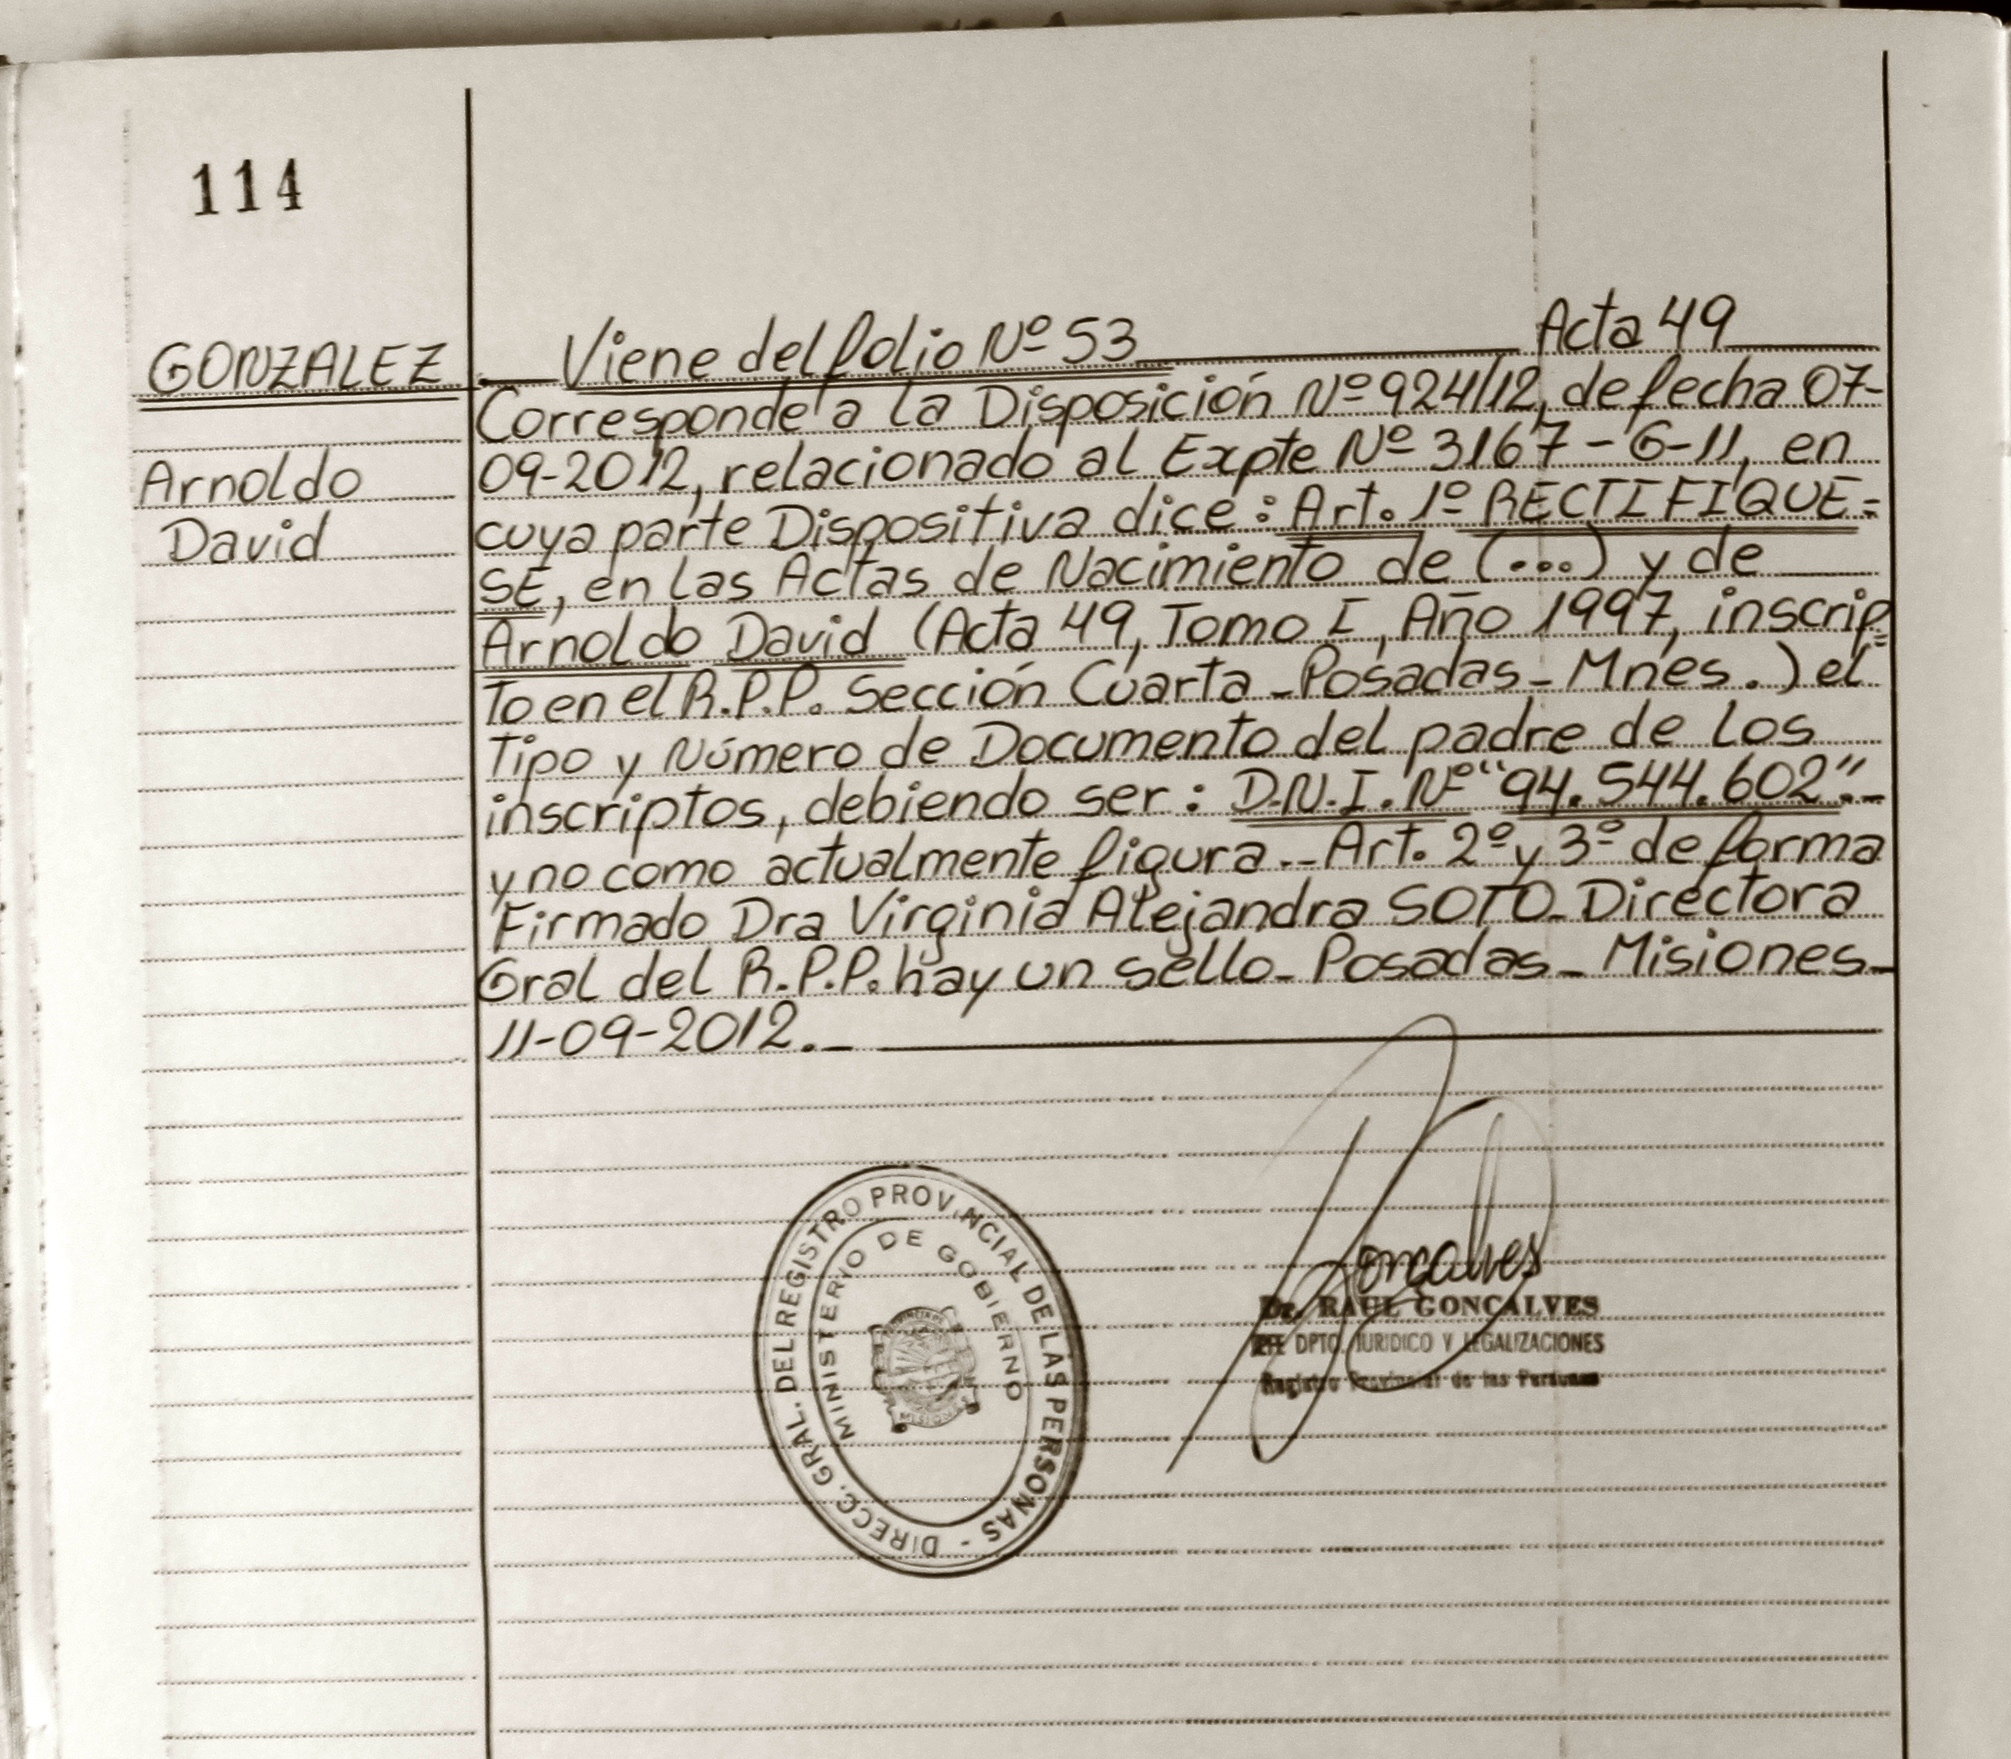 114
GONZALEZ
Arnoldo
David
Viene del folio Nº 53 Acta 49
Corresponde a la Disposición Nº 924/12, de fecha 07-
09-2012, relacionado al Expte Nº 3167-G-11, en
cuya parte Dispositiva dice: Art. 1º RECTIFIQUE=
SE, en las Actas de Nacimiento de (...) y de
Arnoldo David (Acta 49, Tomo I, Año 1997, inscrip=
to en el R.P.P. Sección Cuarta - Posadas - Mnes.) el
Tipo y Número de Documento del padre de los
inscriptos, debiendo ser: D.N.I. Nº "94.544.602".-
y no como actualmente figura.- Art. 2º y 3º de forma
Firmado Dra Virginia Alejandra SOTO - Directora
Gral del R.P.P. hay un sello - Posadas - Misiones -
11-09-2012.-
DIRECC. GRAL. DEL REGISTRO PROVINCIAL DE LAS PERSONAS -
MINISTERIO DE GOBIERNO
MISIONES
Gonçalves
Dr. RAUL GONCALVES
JEFE DPTO. JURIDICO Y LEGALIZACIONES
Registro Provincial de las Personas